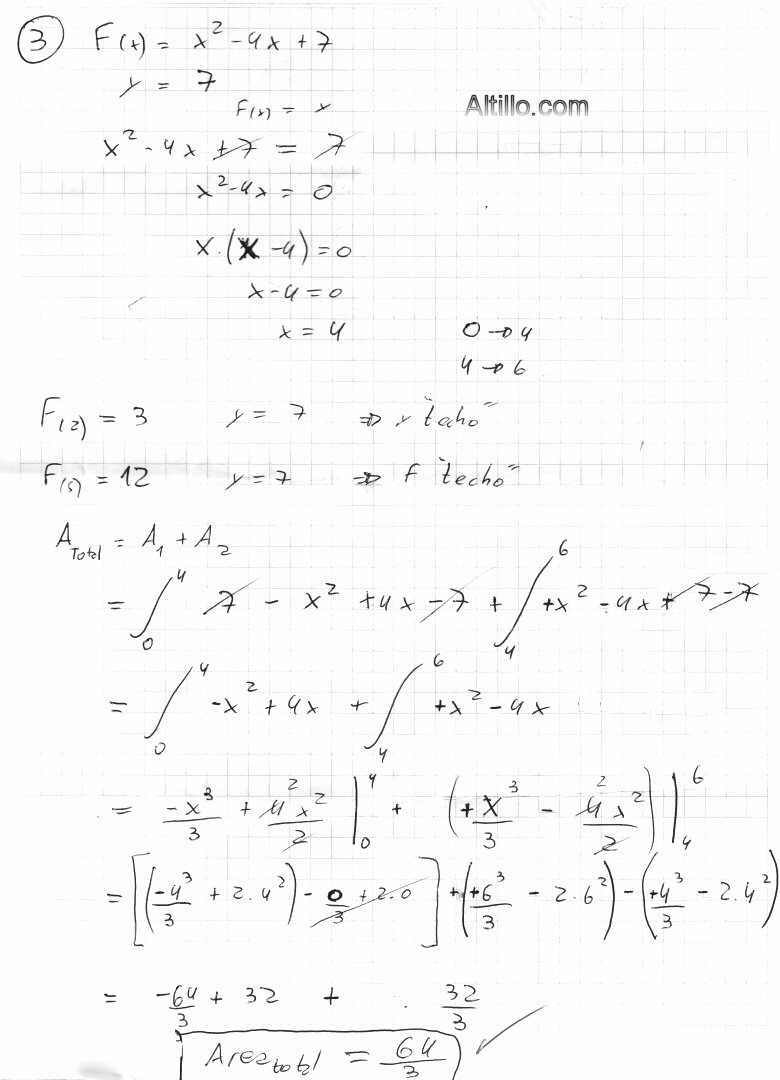 3 F(x) = x² - 4x + 7
y = 7
Altillo.com
F(x) = y
x² - 4x + 7 = 7
x² - 4x = 0
x . (x - 4) = 0
x - 4 = 0
x = 4 0 → 4
4 → 6
F(2) = 3 y = 7 ⇒ y "techo"
F(5) = 12 y = 7 ⇒ F "techo"
A Total = A₁ + A₂
= ∫₀⁴ 7 - x² + 4x - 7 + ∫₄⁶ +x² - 4x + 7 - 7
= ∫₀⁴ -x² + 4x + ∫₄⁶ +x² - 4x
= -x³/3 + 4 2 x²/2 |₀⁴ + (+x³/3 - 4 2 x²/2) |₄⁶
= [(-4³/3 + 2.4²) - 0/3 + 2.0] + (+6³/3 - 2.6²) - (+4³/3 - 2.4²)
= -64/3 + 32 + . 32/3
Area total = 64/3